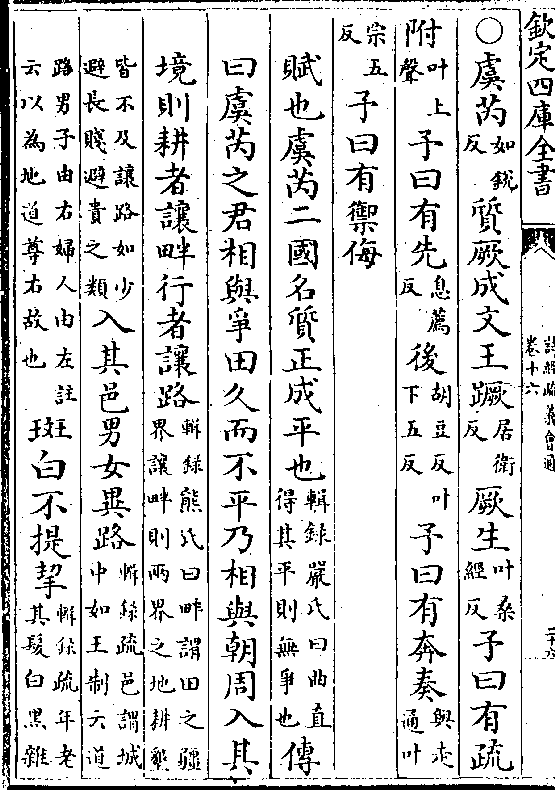 欽定四庫全書
詩經疏義會通
卷十六
二十六
○虞芮如銳反質厥成文王蹶居衛反厥生叶桑經反子曰有疏
附叶上聲子曰有先息薦反後胡豆反叶下五反子曰有奔奏與走通叶
宗五反子曰有禦侮
賦也虞芮二國名質正成平也輯錄嚴氏曰曲直得其平則無爭也傳
曰虞芮之君相與爭田久而不平乃相與朝周入其
境則耕者讓畔行者讓路輯錄熊氏曰畔謂田之疆界讓畔則兩界之地耕墾
皆不及讓路如少避長賤避貴之類入其邑男女異路輯錄疏邑謂城中如王制云道
路男子由右婦人由左註云以為地道尊右故也斑白不提挈輯錄疏年老其髮白黑雜